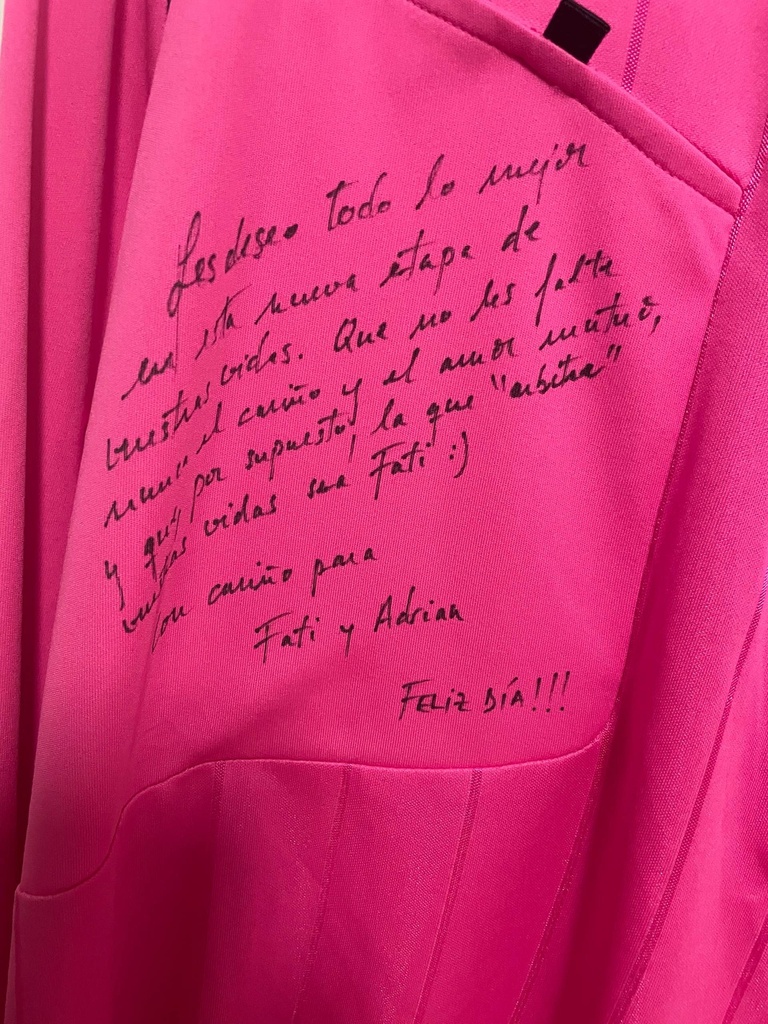 Les deseo todo lo mejor
en esta nueva etapa de
vuestras vidas. Que no les falte
nunca el cariño y el amor mutuo,
y que, por supuesto, la que "arbitra"
vuestras vidas sea Fati :)
Con cariño para
Fati y Adrian
FELIZ DÍA!!!